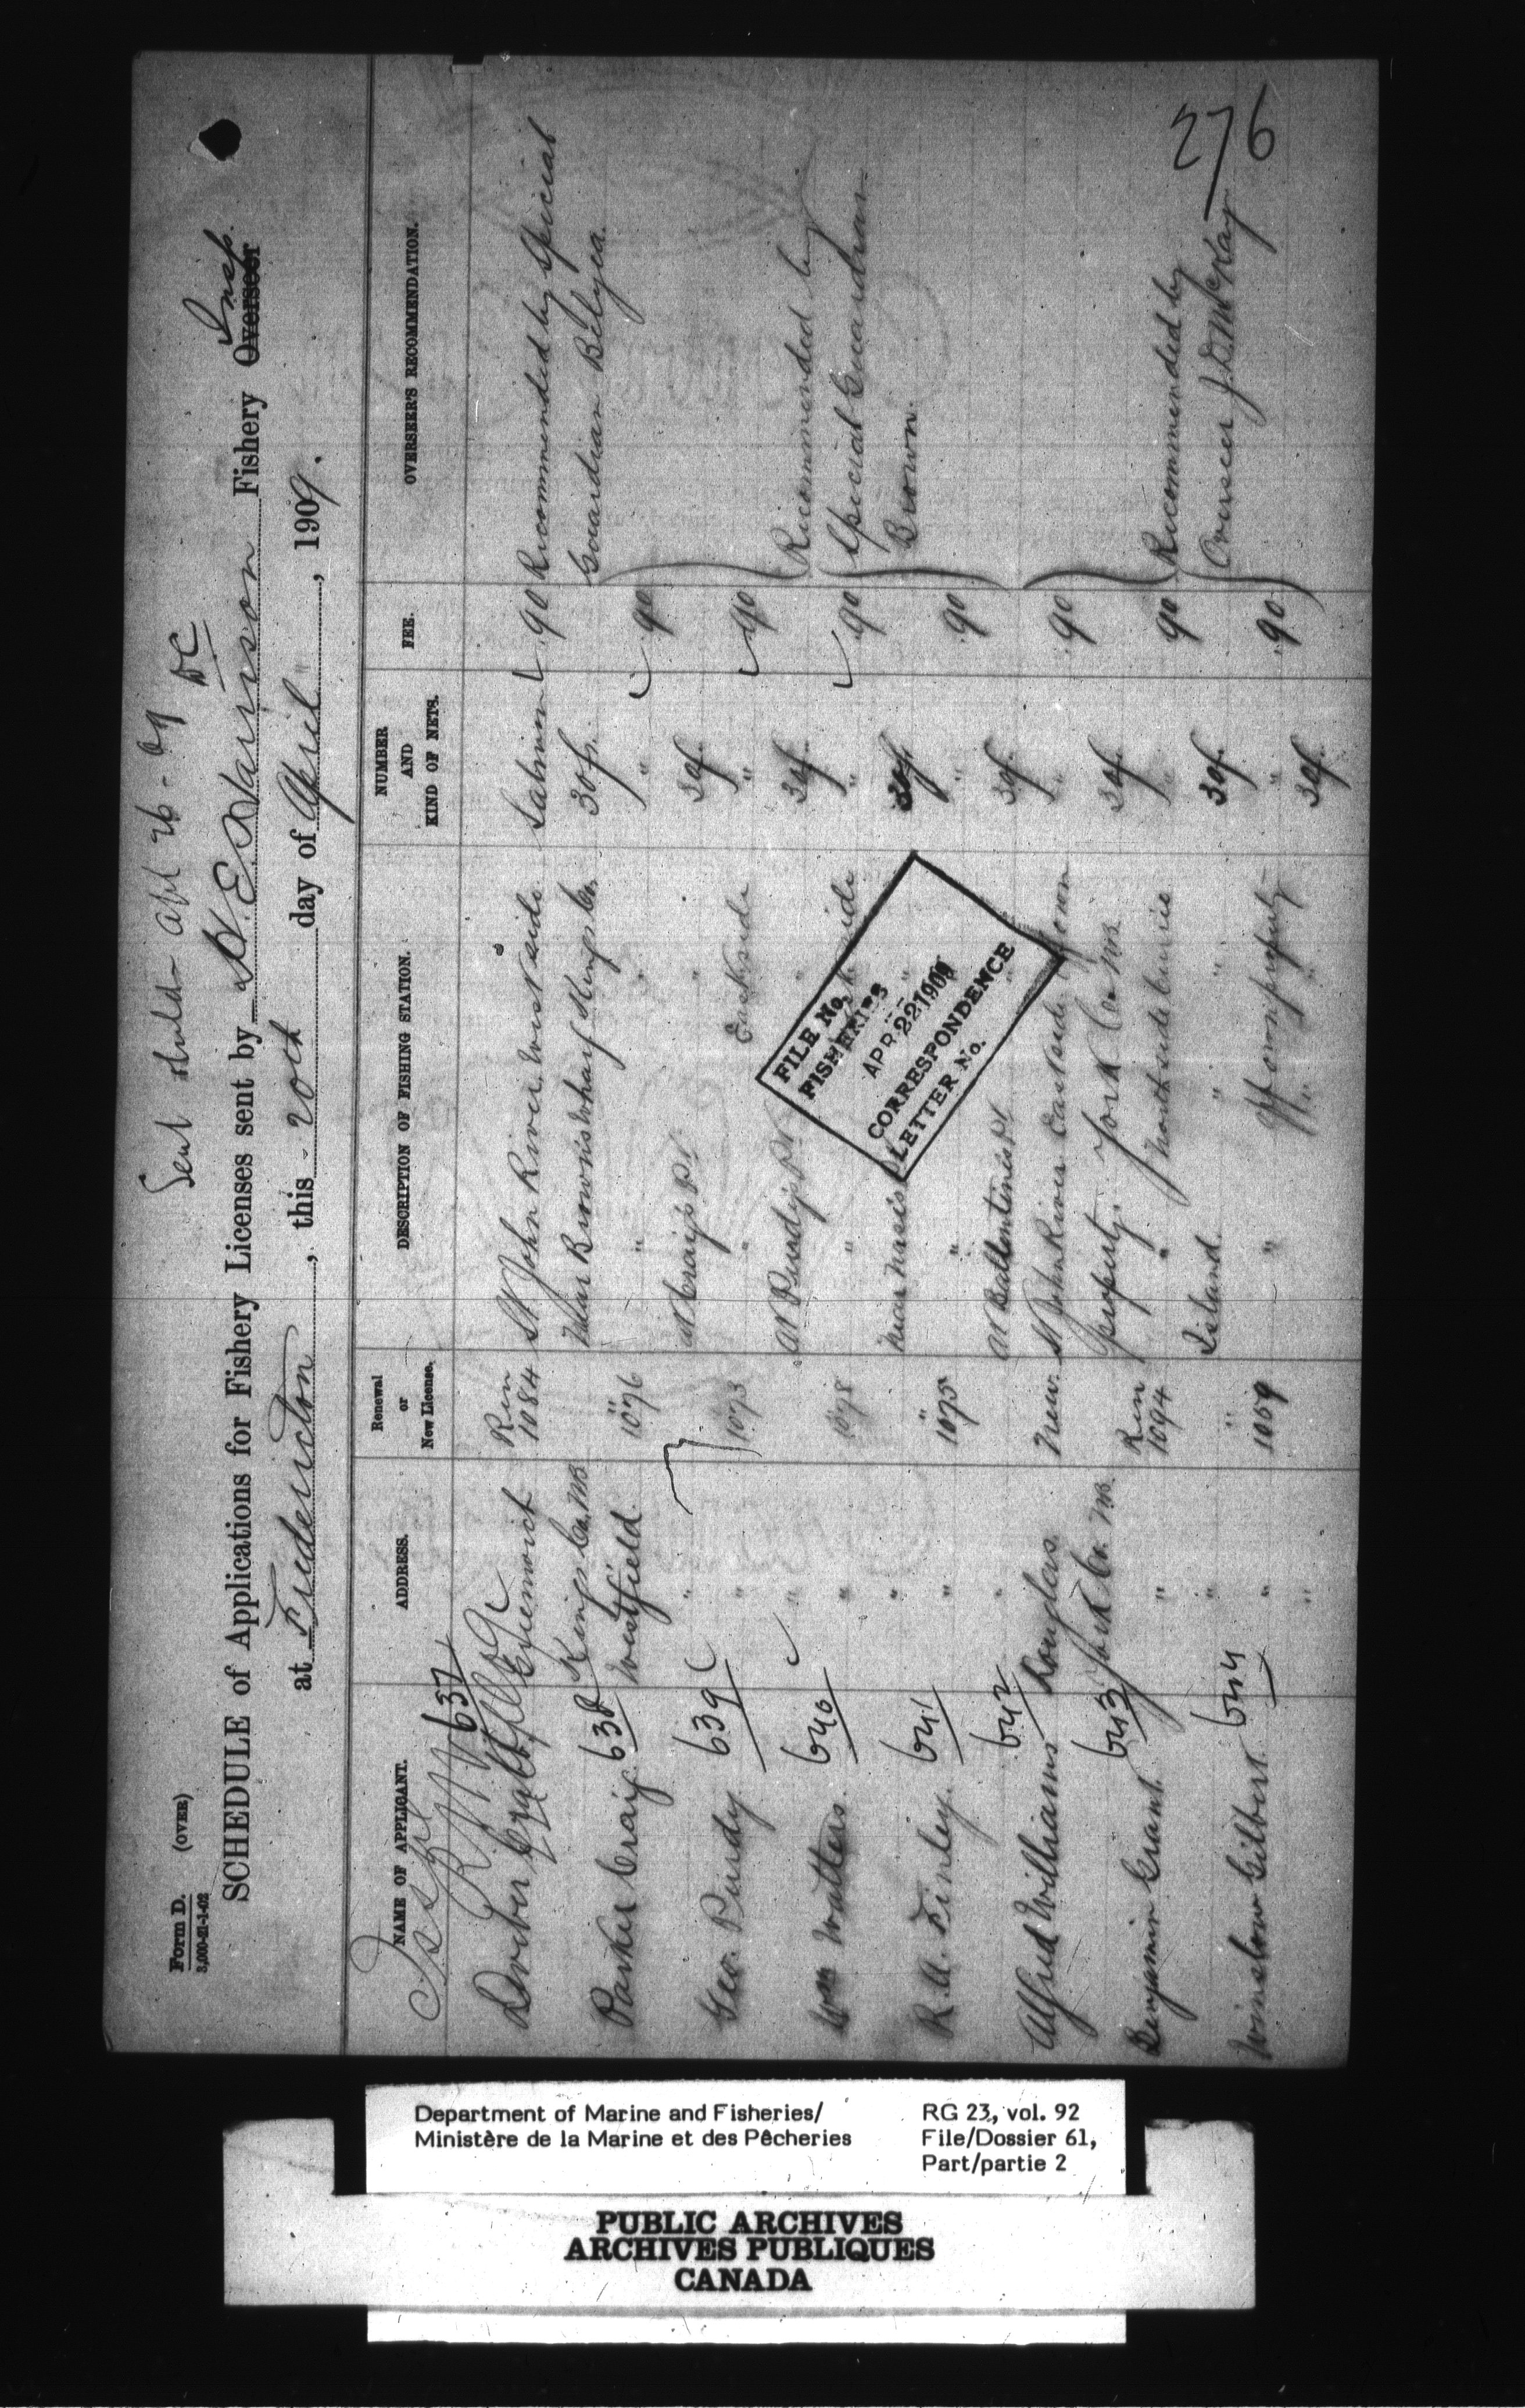 Form D. (OVER)
3,000-21-1-02
Sent sheld- Apl 26-09 DC
SCHEDULE of Applications for Fishery Licenses sent by H.E. Harrison Fishery Overseer Insp.
at Fredericton, this 20th day of April, 1909.
NAME OF APPLICANT. ADDRESS. Renewal or New License. DESCRIPTION OF FISHING STATION. NUMBER AND KIND OF NETS. FEE. OVERSEER'S RECOMMENDATION.
637 Greenwich Ren St John River West side Salmon .90 Recommended by Special
Kings Co. NB 1084 Near Brown's Wharf Kings Co. 30 f. Guardian Belyea.
Parker Craig 638 Westfield " 1076 " " " .90
" at Craig's Pt. 30f.
Geo. Purdy 639 " 1073 " " East side " .90 Recommended by
" at Purdy's Pt. 30f. Special Guardian
Wm Watters. 640 " 1078 " " side " .90 Brown.
" Near 30f
R.A. Finley. 641 " " 1075 " " " .90
" at Ballentine's Pt. 30f.
Alfred Williams 642 Douglas New St John River East side of own " .90
York Co. NB. property. York Co. NB 30f.
Benjamin Grant. 643 " Ren 1094 " North side " .90 Recommended by
" Island. 30f. Overseer J.D. McKay
Winslow Gilbert. 644 " " 1059 " " Off own property " .90
" 30f.
276
FILE No.
FISHERIES
APR 22 1909
CORRESPONDENCE
LETTER No.
Department of Marine and Fisheries/
Ministère de la Marine et des Pêcheries
RG 23, vol. 92
File/Dossier 61,
Part/partie 2
PUBLIC ARCHIVES
ARCHIVES PUBLIQUES
CANADA